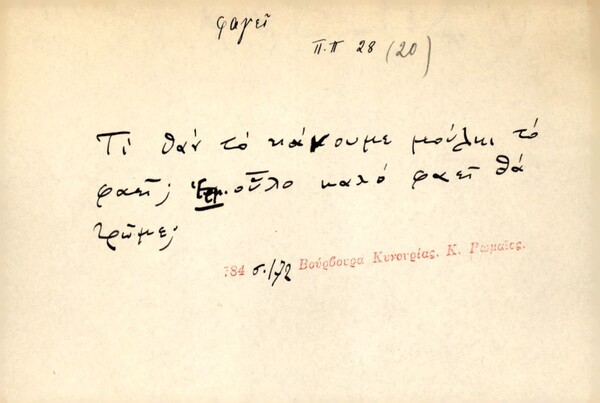 φαγεῖ
Π.Π 28 (20)
Τί θάν τό κάνουμε μούλκι τό
φαεῖ; οὗλο καλό φαεῖ θά
τρῶμε;
784 σ. 172 Βούρβουρα Κυνουρίας, Κ. Ρωμαῖος.